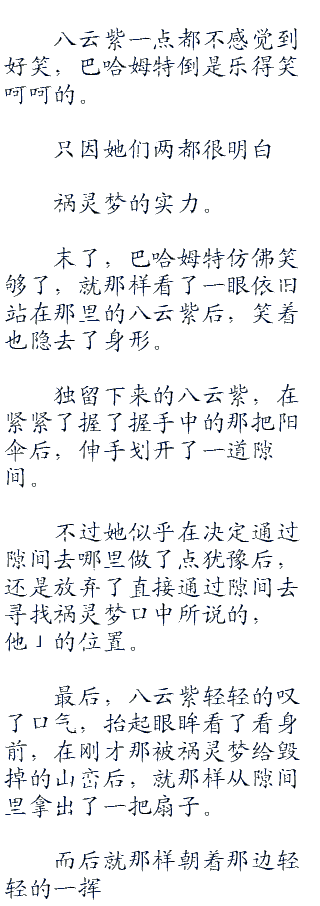 八云紫一点都不感觉到
好笑，巴哈姆特倒是乐得笑
呵呵的。
只因她们两都很明白
祸灵梦的实力。
末了，巴哈姆特仿佛笑
够了，就那样看了一眼依旧
站在那里的八云紫后，笑着
也隐去了身形。
独留下来的八云紫，在
紧紧了握了握手中的那把阳
伞后，伸手划开了一道隙
间。
不过她似乎在决定通过
隙间去哪里做了点犹豫后，
还是放弃了直接通过隙间去
寻找祸灵梦口中所说的，
他」的位置。
最后，八云紫轻轻的叹
了口气，抬起眼眸看了看身
前，在刚才那被祸灵梦给毁
掉的山峦后，就那样从隙间
里拿出了一把扇子。
而后就那样朝着那边轻
轻的一挥